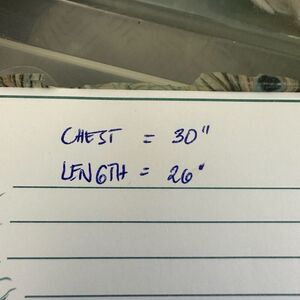 CHEST = 30"
LENGTH = 26"